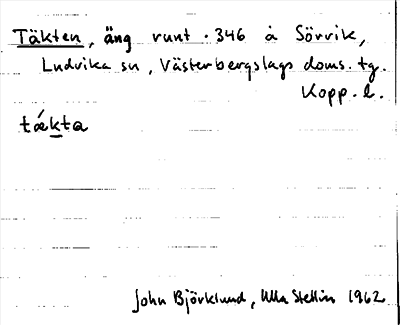 Täkten, äng runt ·346 å Sörvik,
Ludvika sn, Västerbergslags doms. tg.
Kopp. l.
tǽkta
John Björklund, Ulla Stellin 1962